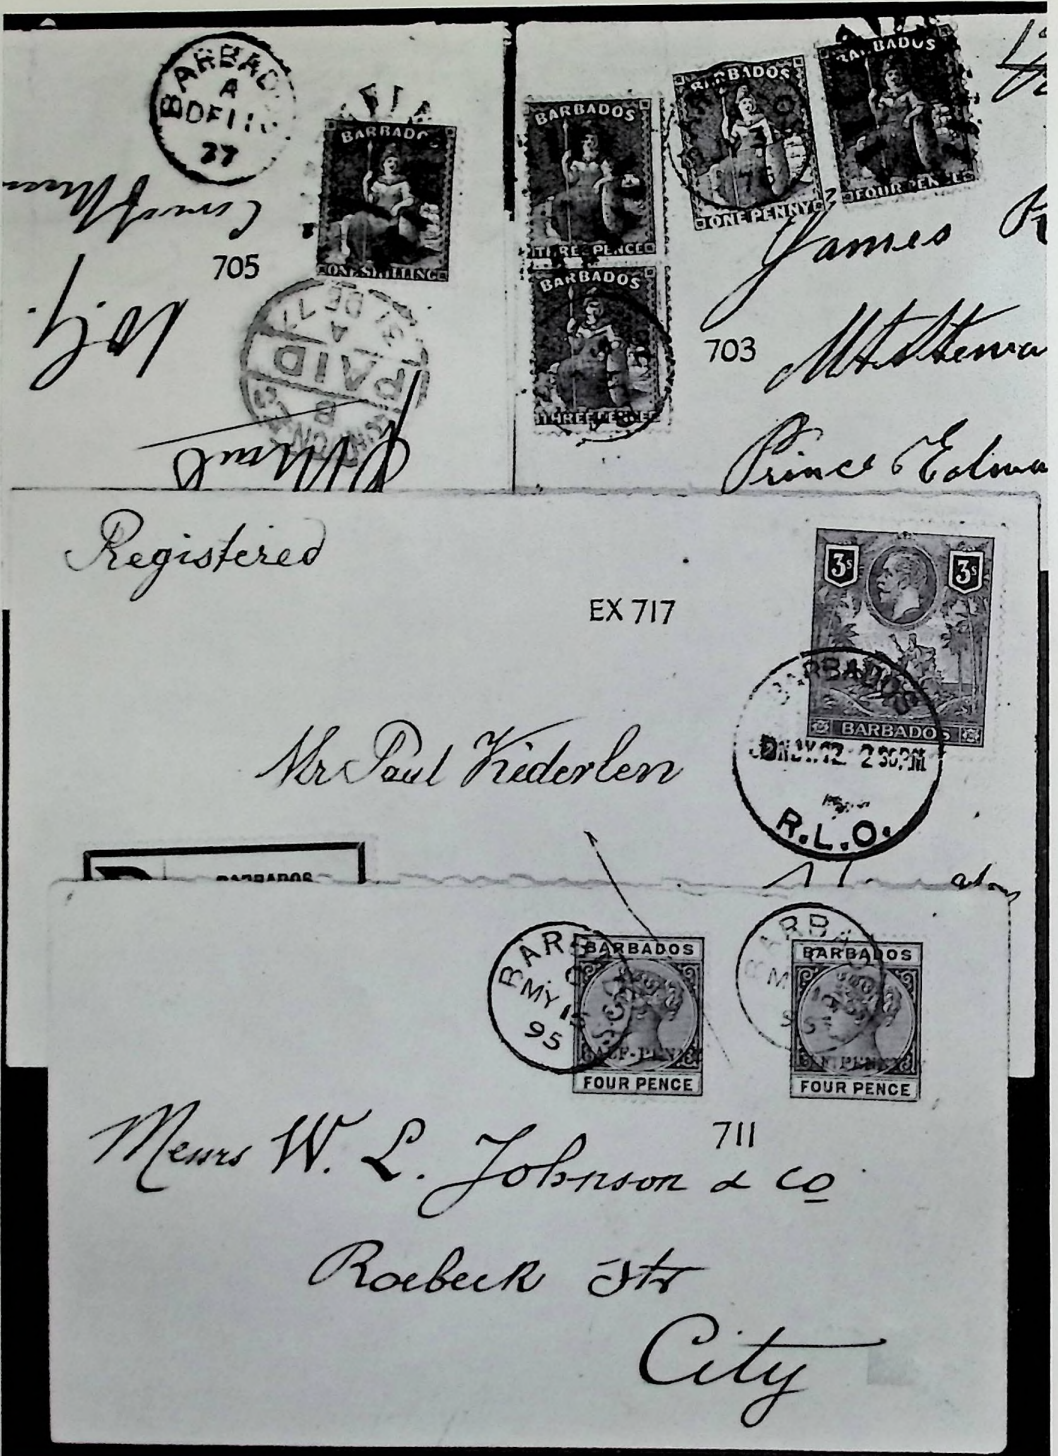 BARBADO
A
DE 11
77
BARBADO
ONE SHILLING
705
31 DE 77
A
PAID
B
BARBADOS
THREE PENCE
BARBADOS
THREE PENCE
BARBADOS
ONE PENNY
BARBADOS
FOUR PENCE
703
James R
Mt Stewa
Prince Edwa
Registered
EX 717
3s 3s
BARBADOS
BARBADOS
2 30 PM
R.L.O.
Mr Paul Kiderlen
BARBADOS
BARB
MY 15
95
BARBADOS
HALF-PENNY
FOUR PENCE
BARBA
BARBADOS
FOUR PENCE
711
Messrs W. L. Johnson & Co
Roebeck Str
City